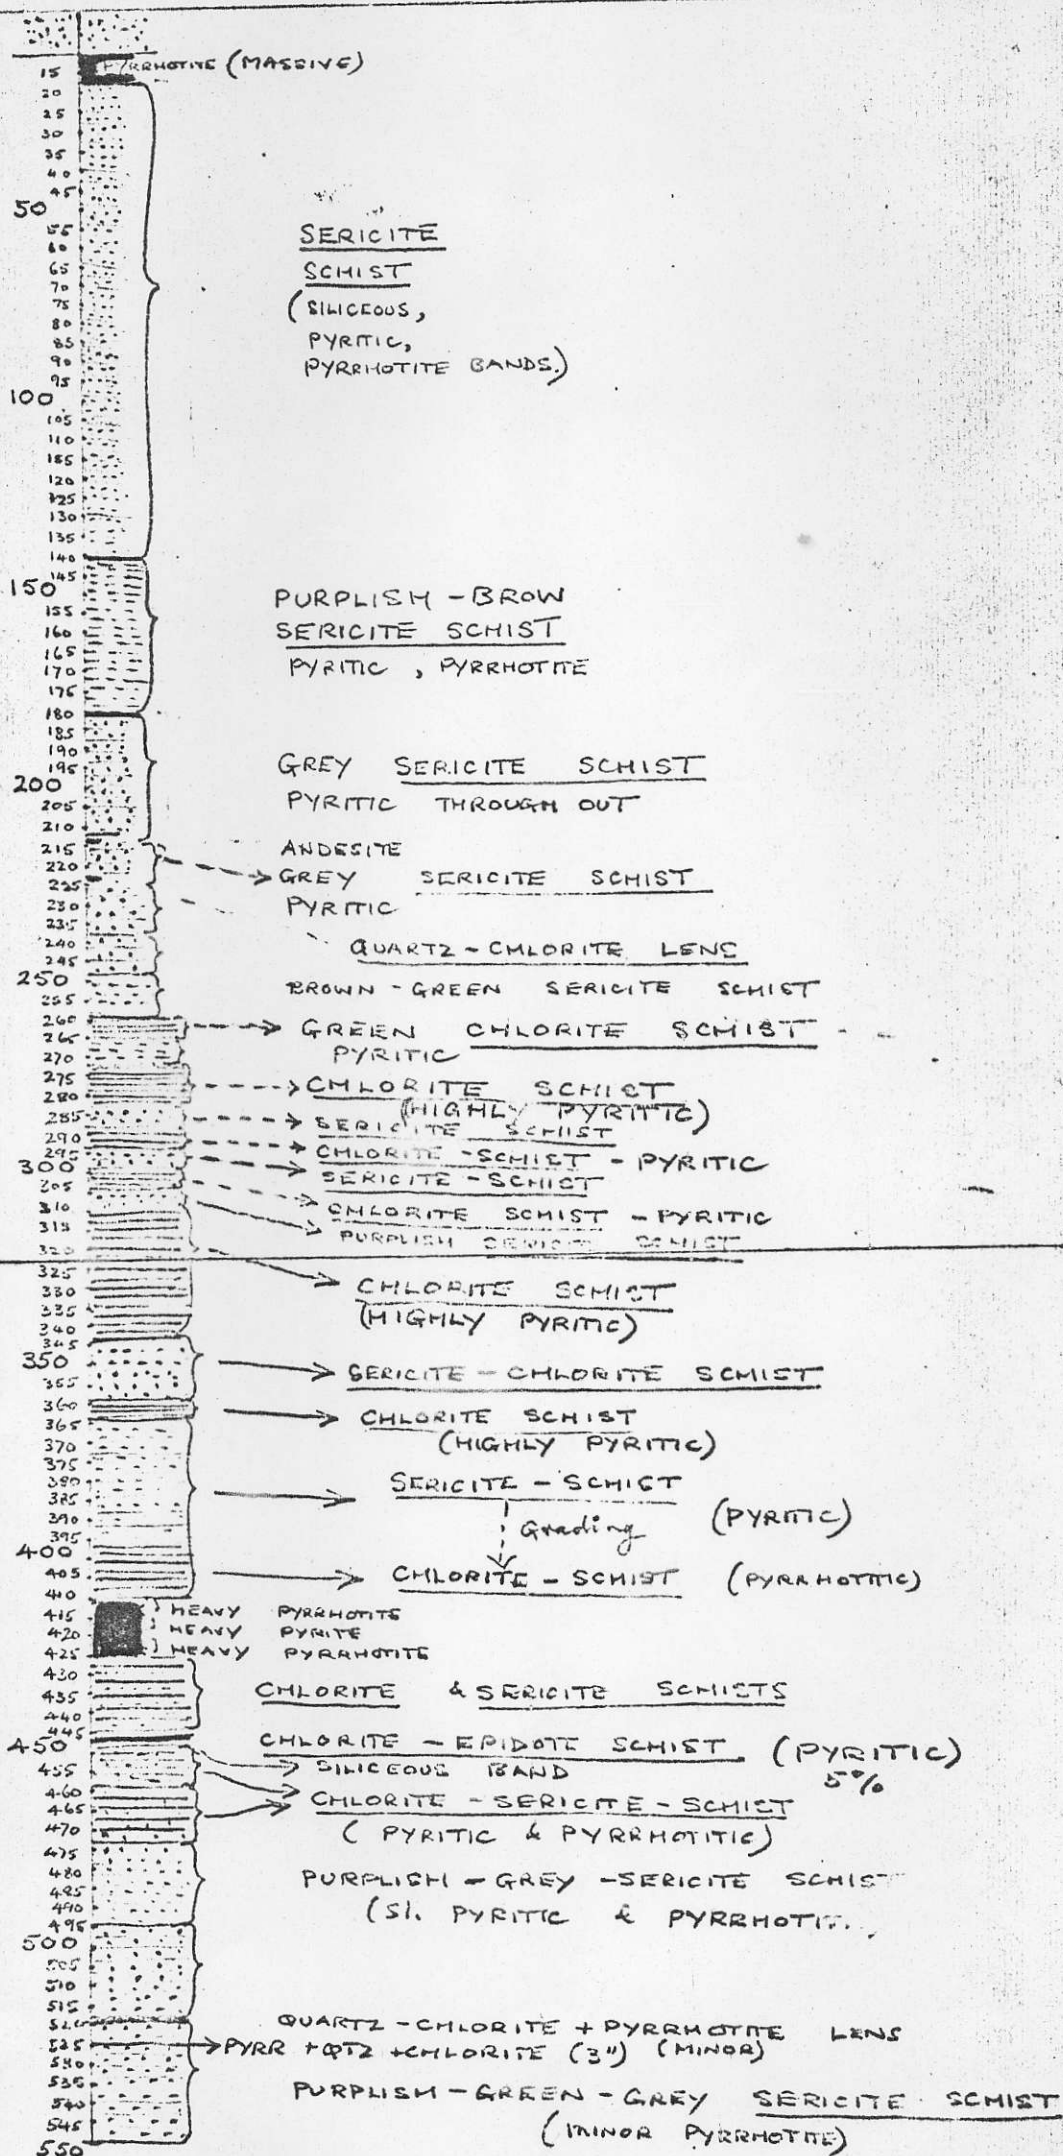 PYRRHOTITE (MASSIVE)
15
20
25
30
35
40
45
50
55
60
65
70
75
80
85
90
95
100
105
110
115
120
125
130
135
140
145
150
155
160
165
170
175
180
185
190
195
200
205
210
215
220
225
230
235
240
245
250
255
260
265
270
275
280
285
290
295
300
305
310
315
320
325
330
335
340
345
350
355
360
365
370
375
380
385
390
395
400
405
410
415
420
425
430
435
440
445
450
455
460
465
470
475
480
485
490
495
500
505
510
515
520
525
530
535
540
545
550
SERICITE
SCHIST
(SILICEOUS,
PYRITIC,
PYRRHOTITE BANDS.)
PURPLISH - BROW
SERICITE SCHIST
PYRITIC , PYRRHOTITE
GREY SERICITE SCHIST
PYRITIC THROUGH OUT
ANDESITE
GREY SERICITE SCHIST
PYRITIC
QUARTZ - CHLORITE LENS
BROWN - GREEN SERICITE SCHIST
GREEN CHLORITE SCHIST
PYRITIC
CHLORITE SCHIST
(HIGHLY PYRITIC)
SERICITE SCHIST
CHLORITE - SCHIST - PYRITIC
SERICITE - SCHIST
CHLORITE SCHIST - PYRITIC
PURPLISH SERICITE SCHIST
CHLORITE SCHIST
(HIGHLY PYRITIC)
SERICITE - CHLORITE SCHIST
CHLORITE SCHIST
(HIGHLY PYRITIC)
SERICITE - SCHIST
(PYRITIC)
Grading
CHLORITE - SCHIST (PYRRHOTITIC)
HEAVY PYRRHOTITE
HEAVY PYRITE
HEAVY PYRRHOTITE
CHLORITE & SERICITE SCHISTS
CHLORITE - EPIDOTE SCHIST (PYRITIC)
5%
SILICEOUS BAND
CHLORITE - SERICITE - SCHIST
( PYRITIC & PYRRHOTITIC)
PURPLISH - GREY - SERICITE SCHIST
(Sl. PYRITIC & PYRRHOTIT.
QUARTZ - CHLORITE + PYRRHOTITE LENS
PYRR + QTZ + CHLORITE (3") (MINOR)
PURPLISH - GREEN - GREY SERICITE SCHIST
(MINOR PYRRHOTITE)